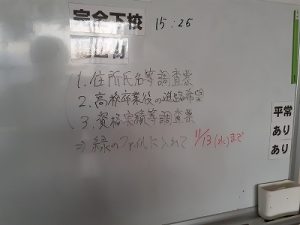 完全下校 15:25
1. 住所氏名等調査票
2. 高校卒業後の進路希望
3. 資格実績等調査票
⇒ 緑のファイルに入れて 11/13(水)まで
平常
あり
あり